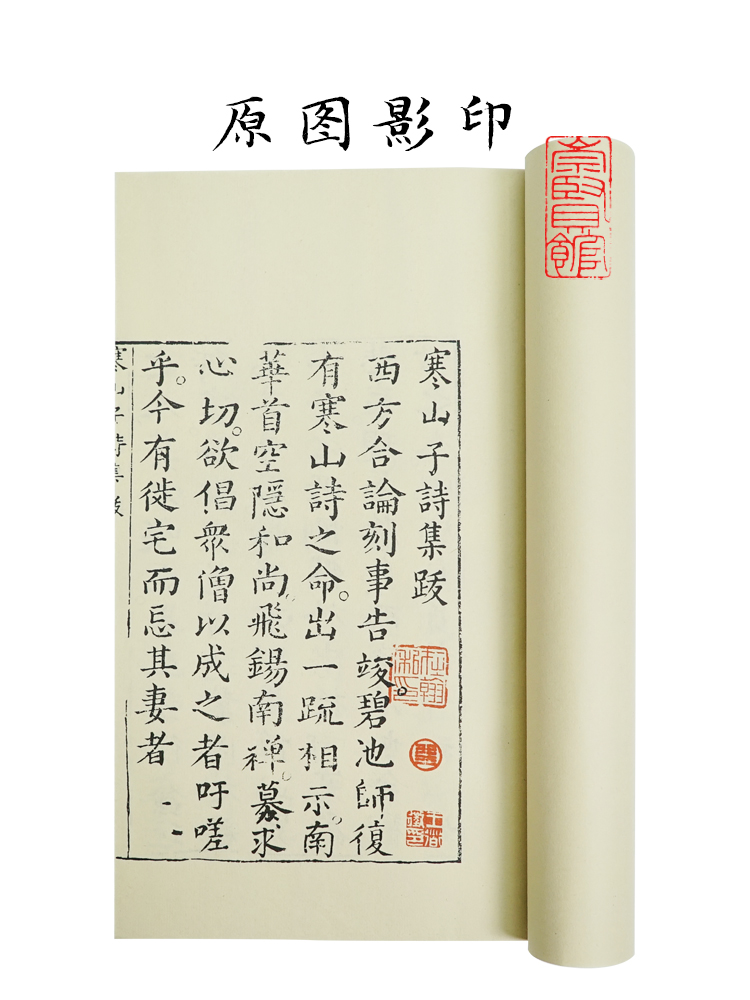 原图影印
崇賢館
寒山子詩集跋
西方合論刻事告竣。碧池師復
有寒山詩之命。出一疏相示。南
華首空隱和尚。飛錫南禪。募求
心切。欲倡衆僧以成之者吁嗟
乎。今有徙宅而忘其妻者
寒山子詩集 跋